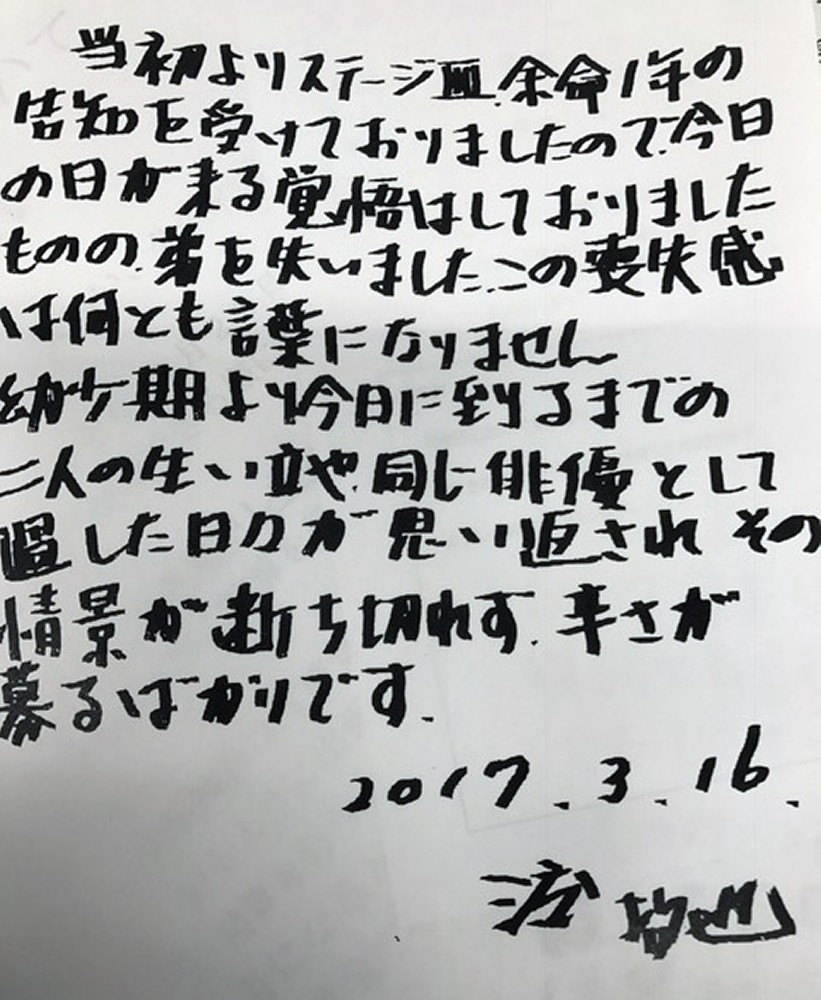 当初よりステージⅢ.余命1年の
告知を受けておりましたので.今日
の日が来る覚悟はしておりました
ものの.弟を失いました.この喪失感
は何とも言葉になりません
幼少期より今日に到るまでの
二人の生い立や.同じ俳優として
過した日々が思い返され その
情景が断ち切れず.辛さが
募るばかりです.
2017.3.16.